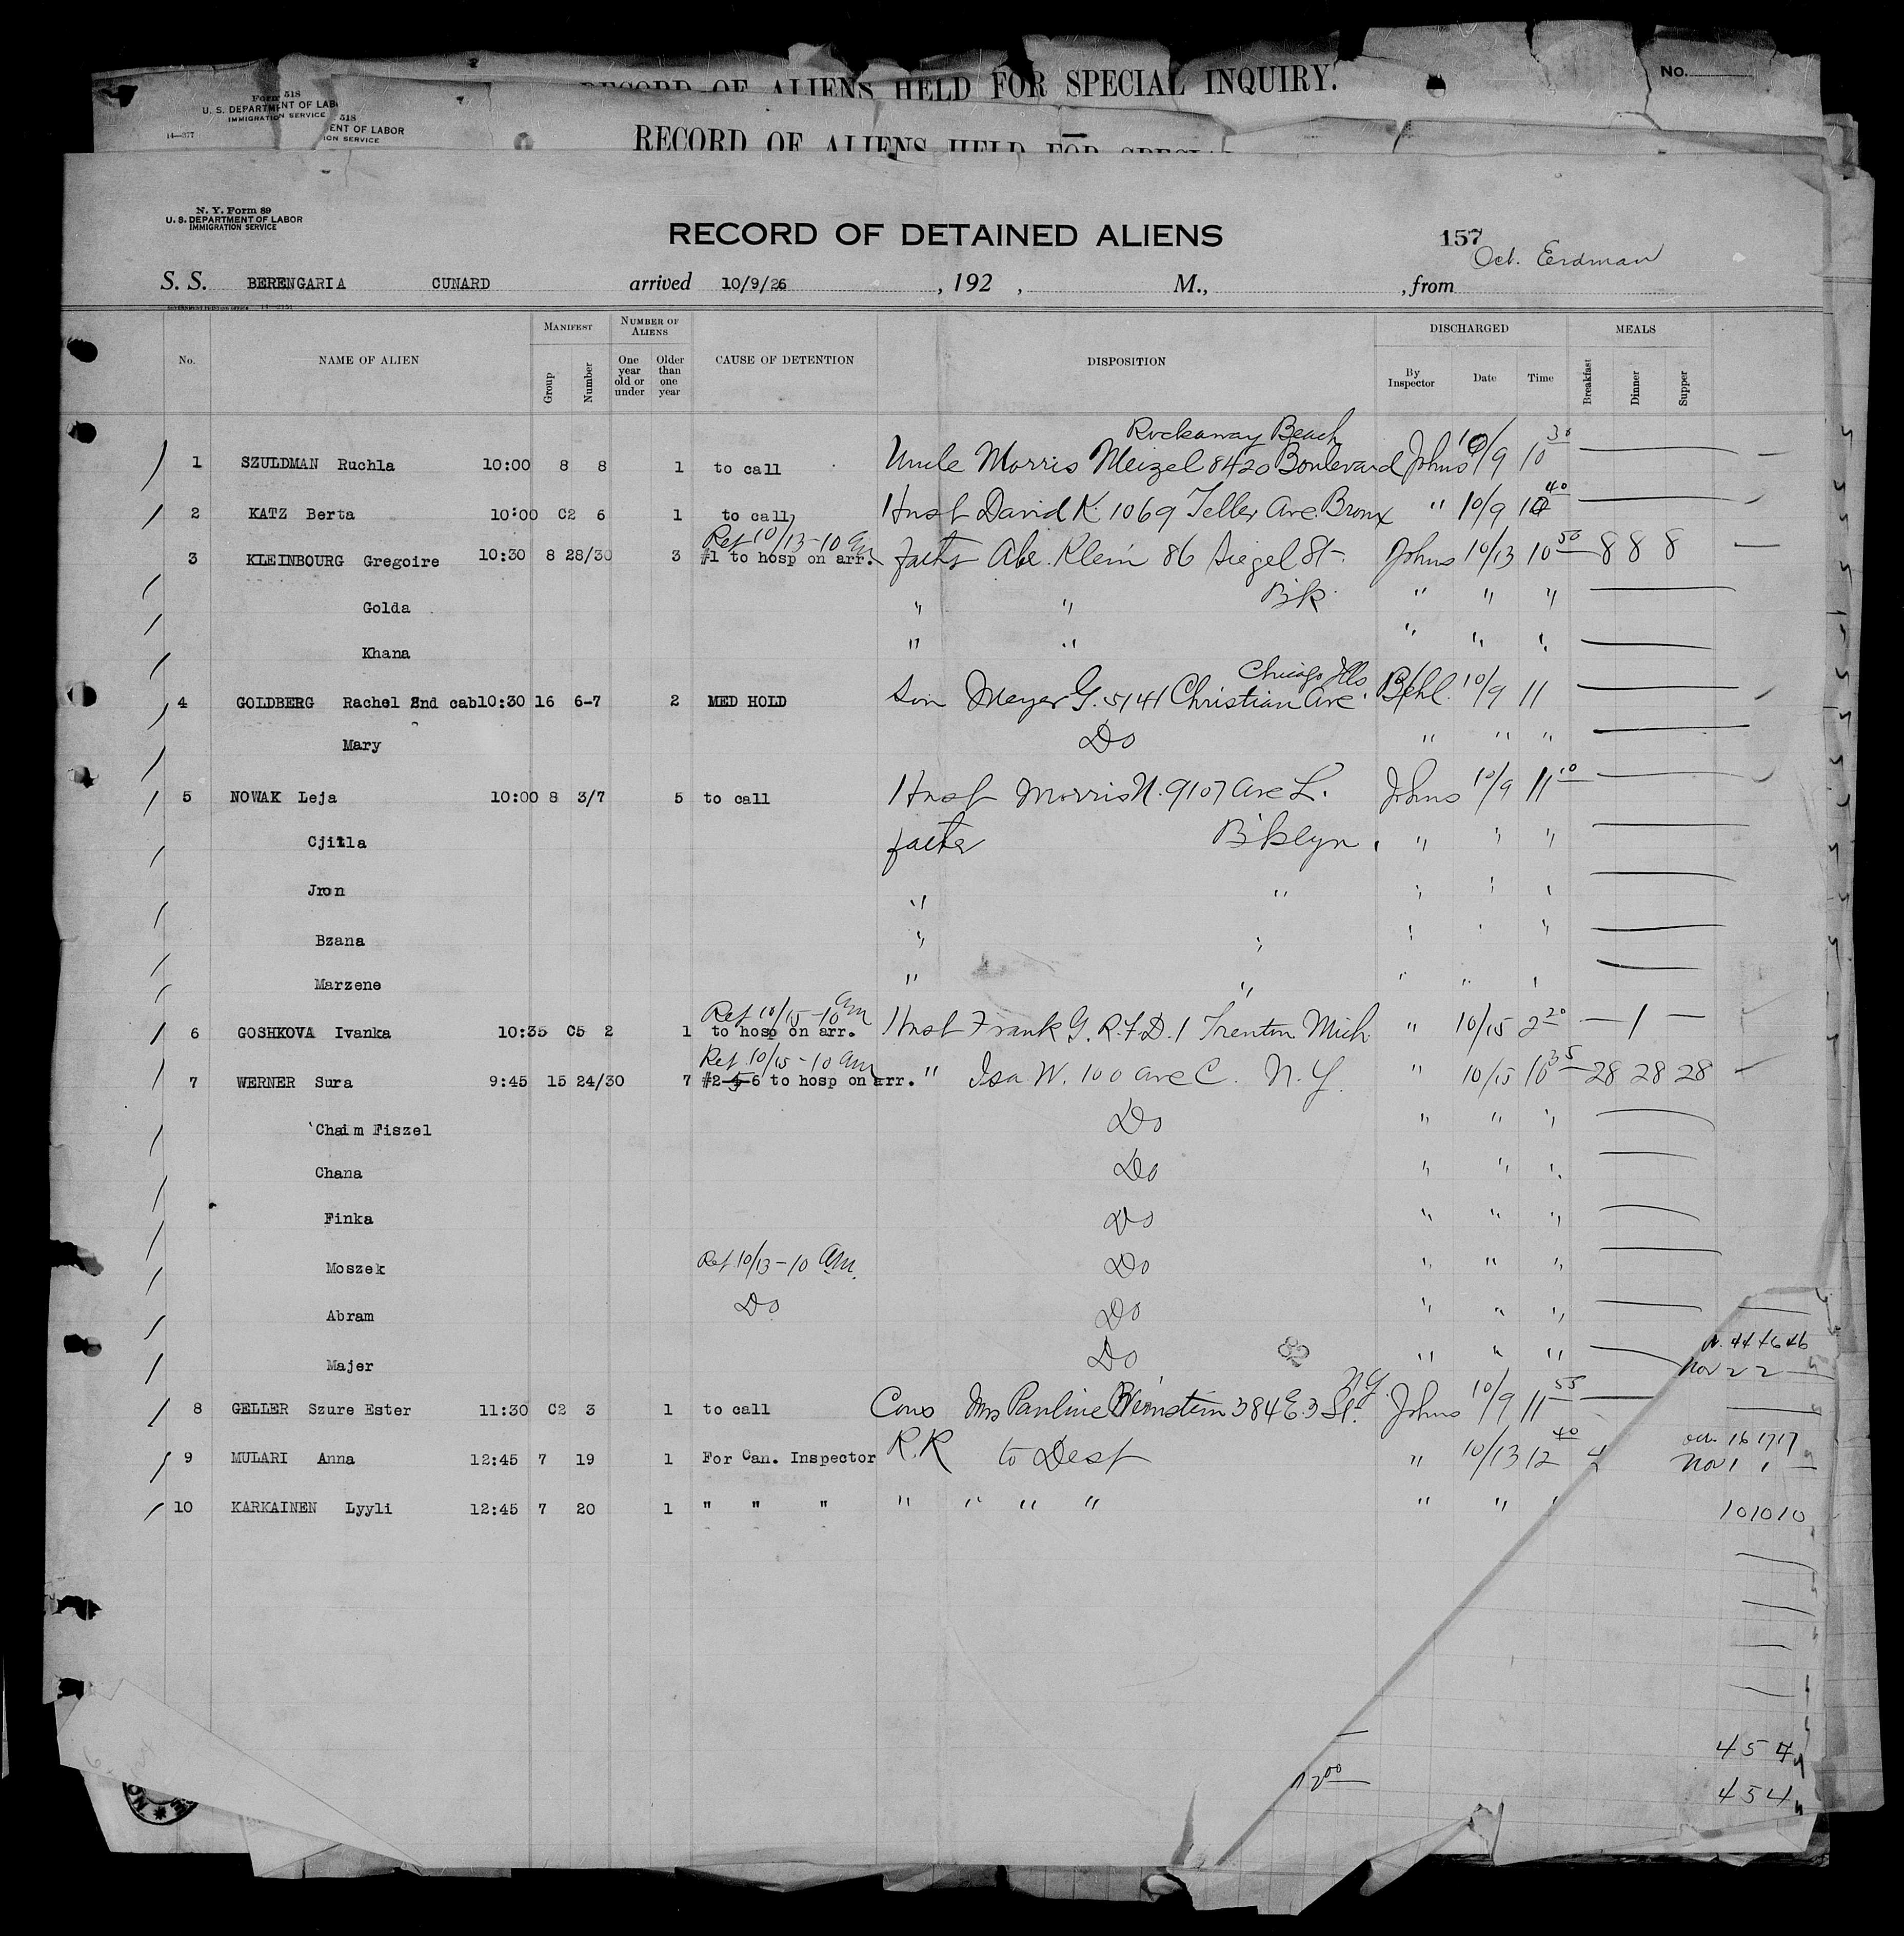 RECORD OF ALIENS HELD FOR SPECIAL INQUIRY.
No.
Form 518
U. S. DEPARTMENT OF LAB
IMMIGRATION SERVICE
14—377
518
ENT OF LABOR
ION SERVICE
RECORD OF ALIENS HELD FOR SPECIAL
N. Y. Form 89
U. S. DEPARTMENT OF LABOR
IMMIGRATION SERVICE
RECORD OF DETAINED ALIENS
157
Oct. Erdman
S. S. BERENGARIA CUNARD arrived 10/9/26 , 192 , M., , from
No. NAME OF ALIEN MANIFEST Group Number NUMBER OF ALIENS One year old or under Older than one year CAUSE OF DETENTION DISPOSITION DISCHARGED By Inspector Date Time MEALS Breakfast Dinner Supper
Rockaway Beach
1 SZULDMAN Ruchla 10:00 8 8 1 to call Uncle Morris Meizel 8420 Boulevard Johns 10/9 10 30
2 KATZ Berta 10:00 C2 6 1 to call Husb David K. 1069 Teller Ave. Bronx " 10/9 10 40
Ret 10/13 - 10 am
3 KLEINBOURG Gregoire 10:30 8 28/30 3 #1 to hosp on arr. father Abe Klein 86 Siegel St - Johns 10/13 10 50 8 8 8
Golda " " Bk. " " "
Khana " " " " "
Chicago Ills
4 GOLDBERG Rachel 2nd cab 10:30 16 6-7 2 MED HOLD Son Meyer G. 5141 Christian Ave. 10/9 11
Mary Do " " "
5 NOWAK Leja 10:00 8 3/7 5 to call Husb Morris N. 9107 Ave L. Johns 10/9 11 10
Cjitla father B'klyn. " " "
Jron " " " " "
Bzana " " " " "
Marzene " " " " "
Ret 10/15 - 10 am
6 GOSHKOVA Ivanka 10:35 C5 2 1 to hosp on arr. Husb Frank G. R.F.D. 1 Trenton Mich " 10/15 2 20 — 1 —
Ret 10/15 - 10 am
7 WERNER Sura 9:45 15 24/30 7 #2-5-6 to hosp on arr. " Isa W. 100 Ave C. N.Y. " 10/15 10 35 28 28 28
Chaim Fiszel Do " " "
Chana Do " " "
Finka Do " " "
Moszek Ret 10/13 - 10 am. Do " " "
Abram Do Do " " "
Majer Do " " "
Nov 2 2
N.Y.
8 GELLER Szure Ester 11:30 C2 3 1 to call Cous Mrs Pauline 384 E. 3 St. Johns 10/9 11 55
9 MULARI Anna 12:45 7 19 1 For Can. Inspector R.R to Dest " 10/13 12 40
Oct. 16 17 17
Nov 1 1
10 KARKAINEN Lyyli 12:45 7 20 1 " " " " " " " " " "
10 10 10